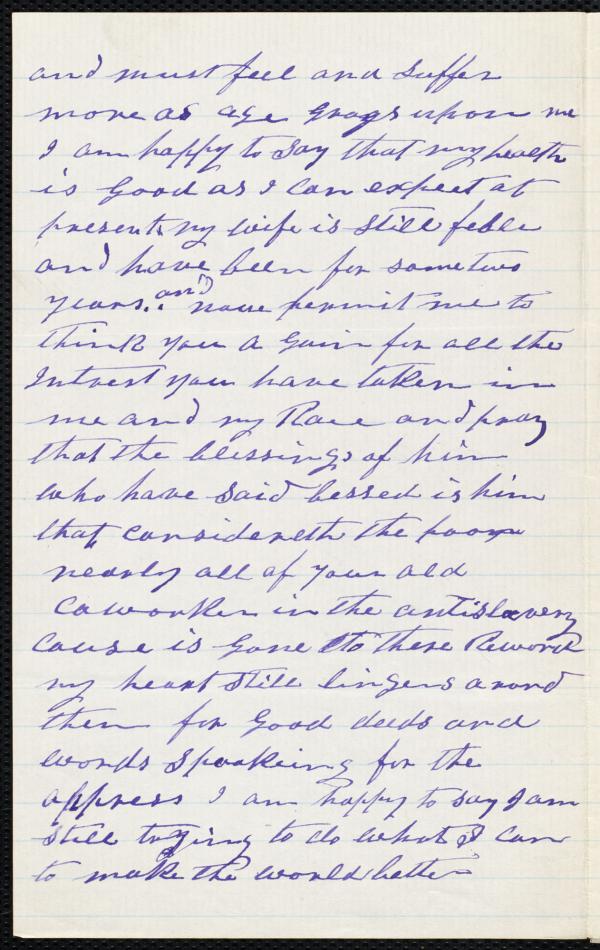 and must feel and suffer
more as age grogs upon me
I am happy to say that my health
is Good as I can expect at
present. my wife is still feble
and have been for some two
years. and now permit me to
think you a Gain for all the
Intrest you have taken in
me and my Race and pray
that the blessings of him
who have said bessed is him
that considereth the poor
nearly all of your old
Coworker in the antislavery
Cause is Gone to there Reword
my heart still lingers arond
them for Good deeds and
words Spookeing for the
oppress I am happy to say I am
still trying to do what I can
to make the world better